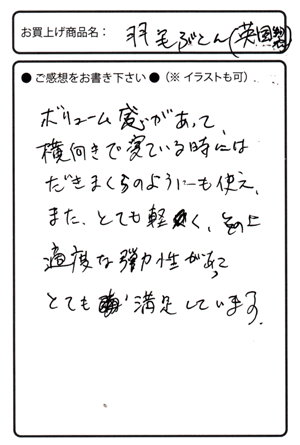 お買上げ商品名： 羽毛ぶとん(英国製)
● ご感想をお書き下さい ●（※ イラストも可）
ボリューム感があって、
横向きで寝ている時には
だきまくらのようにも使え、
また、とても軽く、その上
適度な弾力性があって
とても 満足しています。